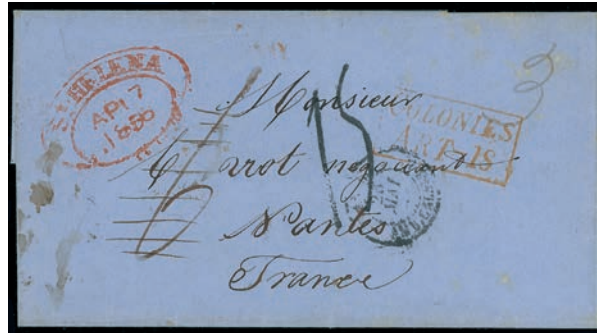 ST HELENA
AP 7
1856
COLONIES
ART-18
15
Monsieur
négociant
Nantes
France